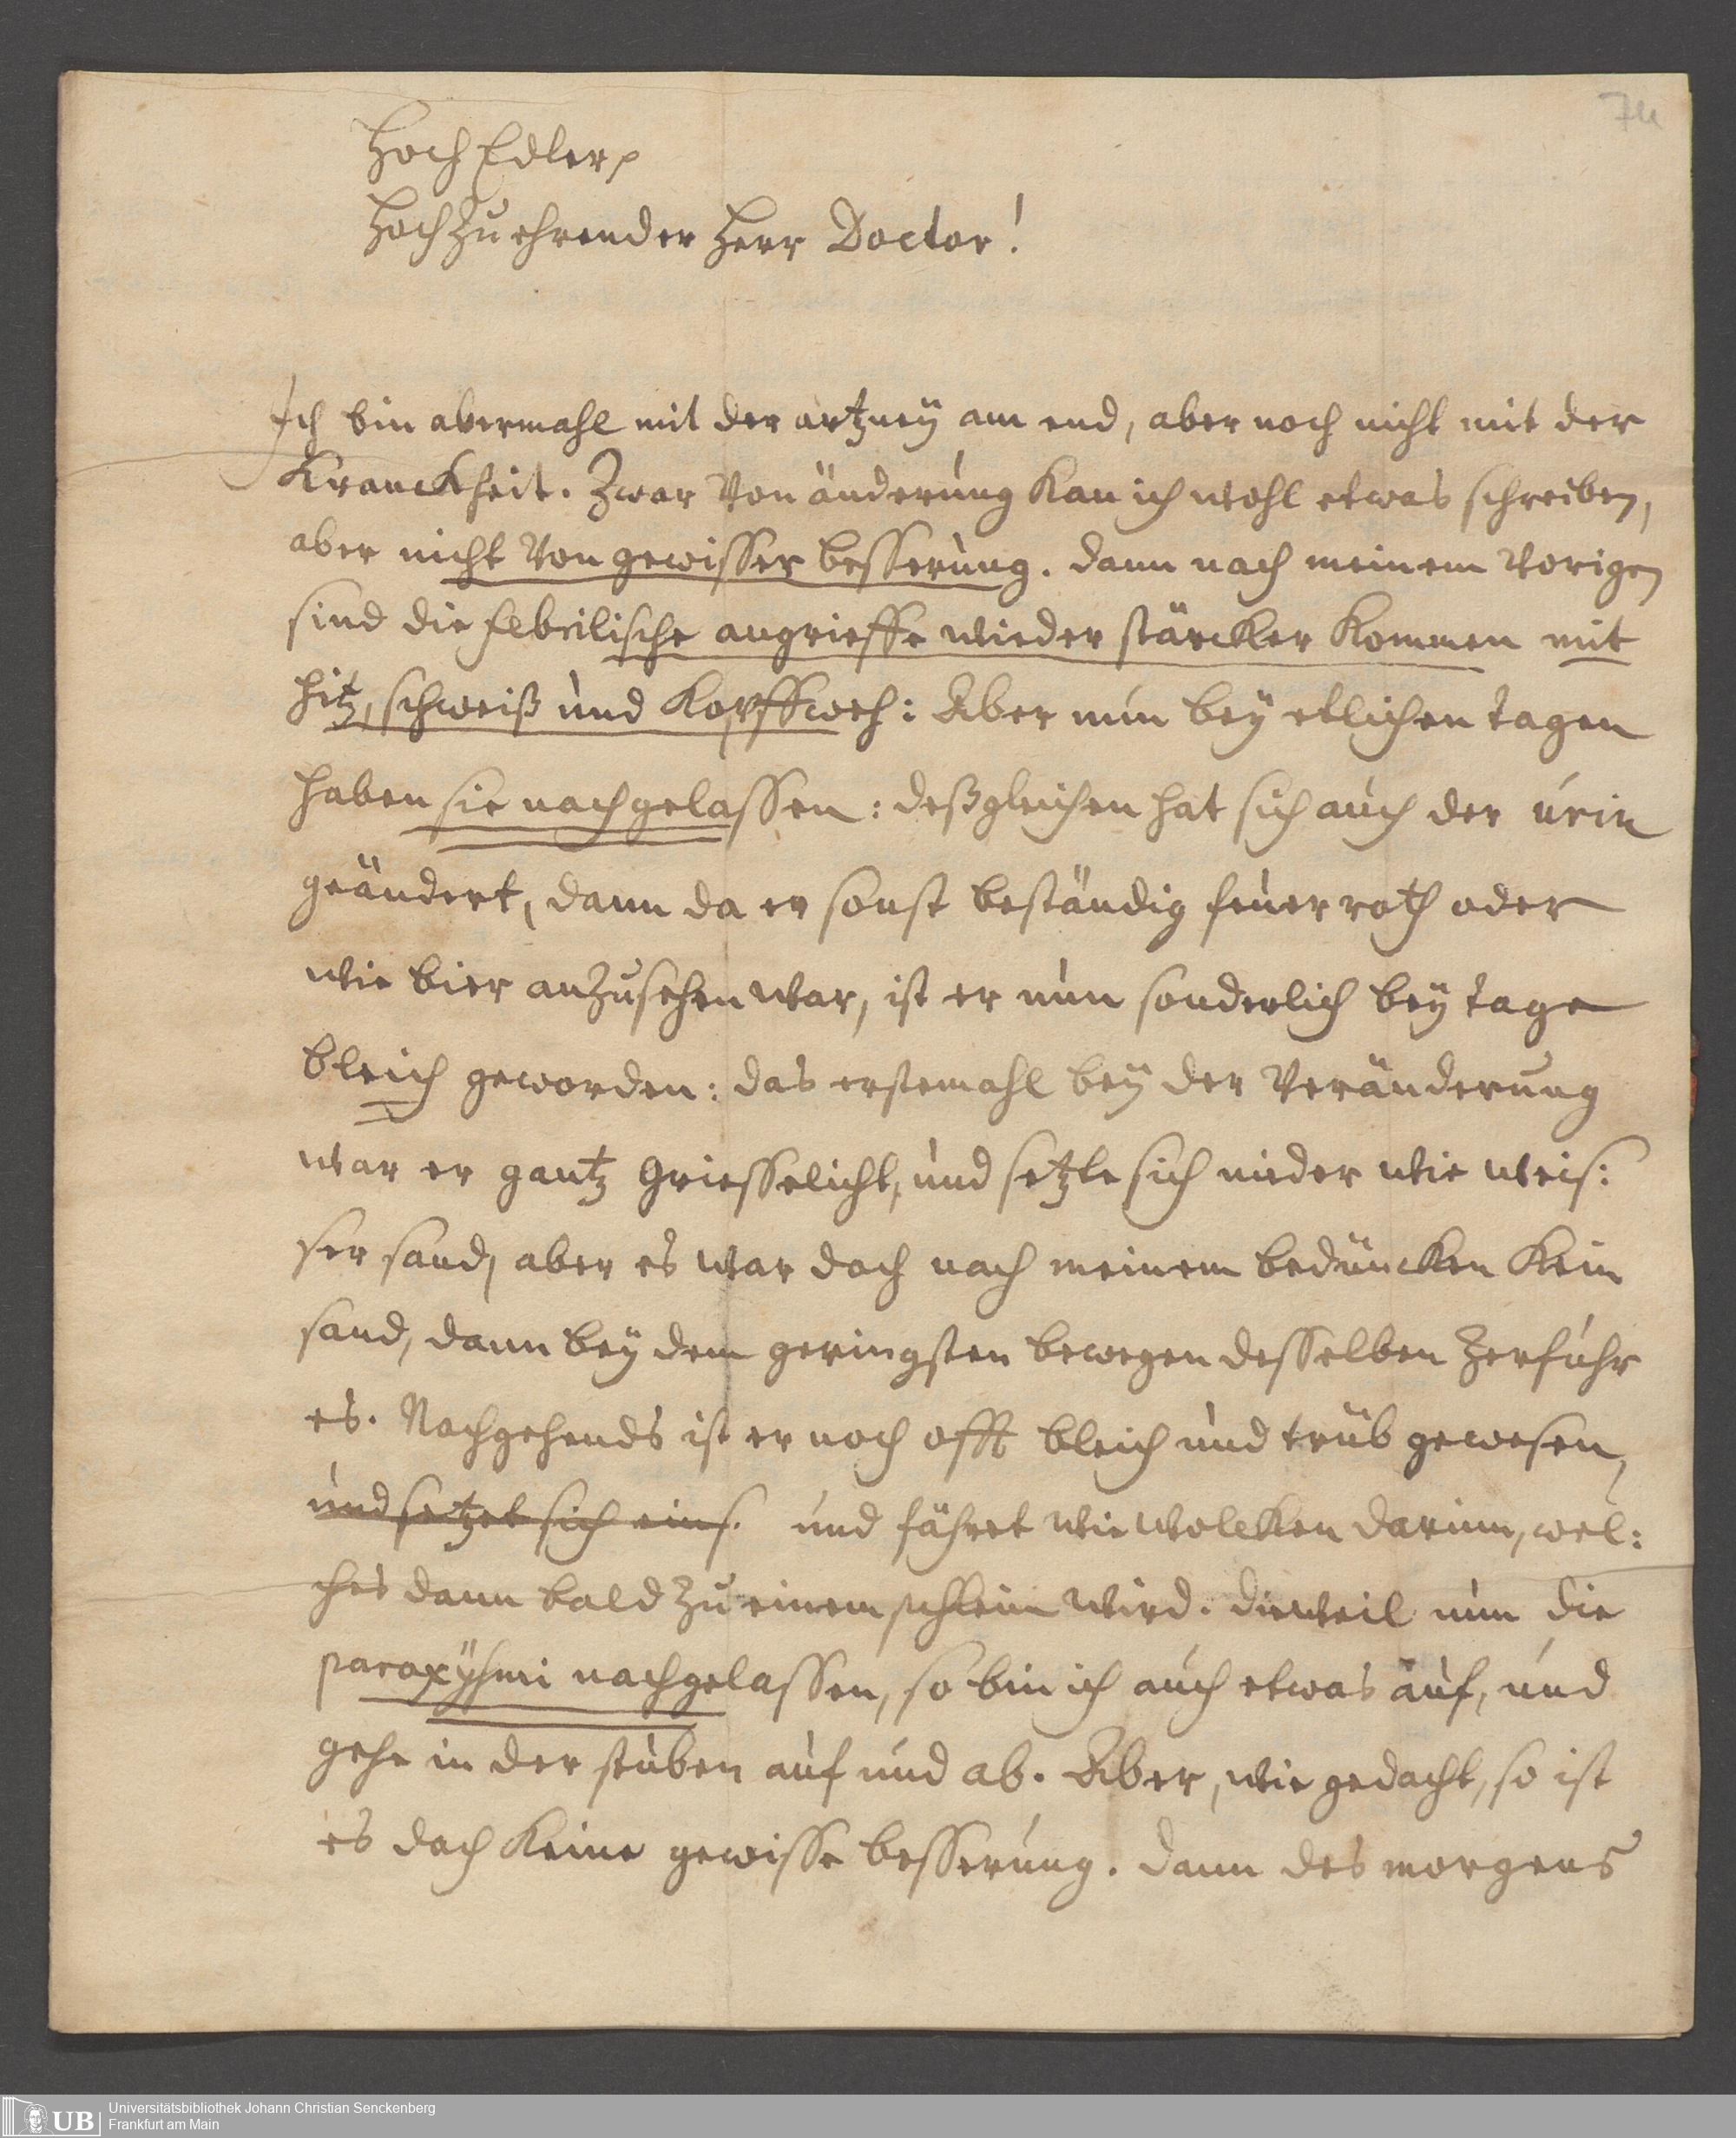 74
HochEdler,
HochZuehrender Herr Doctor!
Ich bin abermahl mit der artzneÿ am end, aber noch nicht mit der
Kranckheit. Zwar Von änderung Kan ich wohl etwas schreiben,
aber nicht Von gewisser besserung. dann nach meinem Vorigen
sind die febrilische angrieffe wieder stärcker Kommen mit
hitz, schweiß und Kopffweh: Aber nun beÿ etlichen tagen
haben sie nachgelassen: deßgleichen hat sich auch der urin
geändert, dann da er sonst beständig feuerroth oder
wie bier anZusehen war, ist er nun sonderlich beÿ tage
bleich geworden: das erstemahl beÿ der Veränderung
war er gantz Griesselicht, und setzte sich nieder wie weis:
ser sand, aber es war doch nach meinem bedüncken Kein
sand, dann beÿ dem geringsten bewegen desselben Zerfuhr
es. Nachgehends ist er noch offt bleich und trüb gewesen,
und setzet sich eins. und fähret wie wolcken darinn, wel:
ches dann bald Zu einem schleim wird. dieweil nun die
paroxÿsmi nachgelassen, so bin ich auch etwas auf, und
gehe in der stuben auf und ab. Aber, wie gedacht, so ist
es doch Keine gewisse besserung. dann des morgens
UB
Universitätsbibliothek Johann Christian Senckenberg
Frankfurt am Main